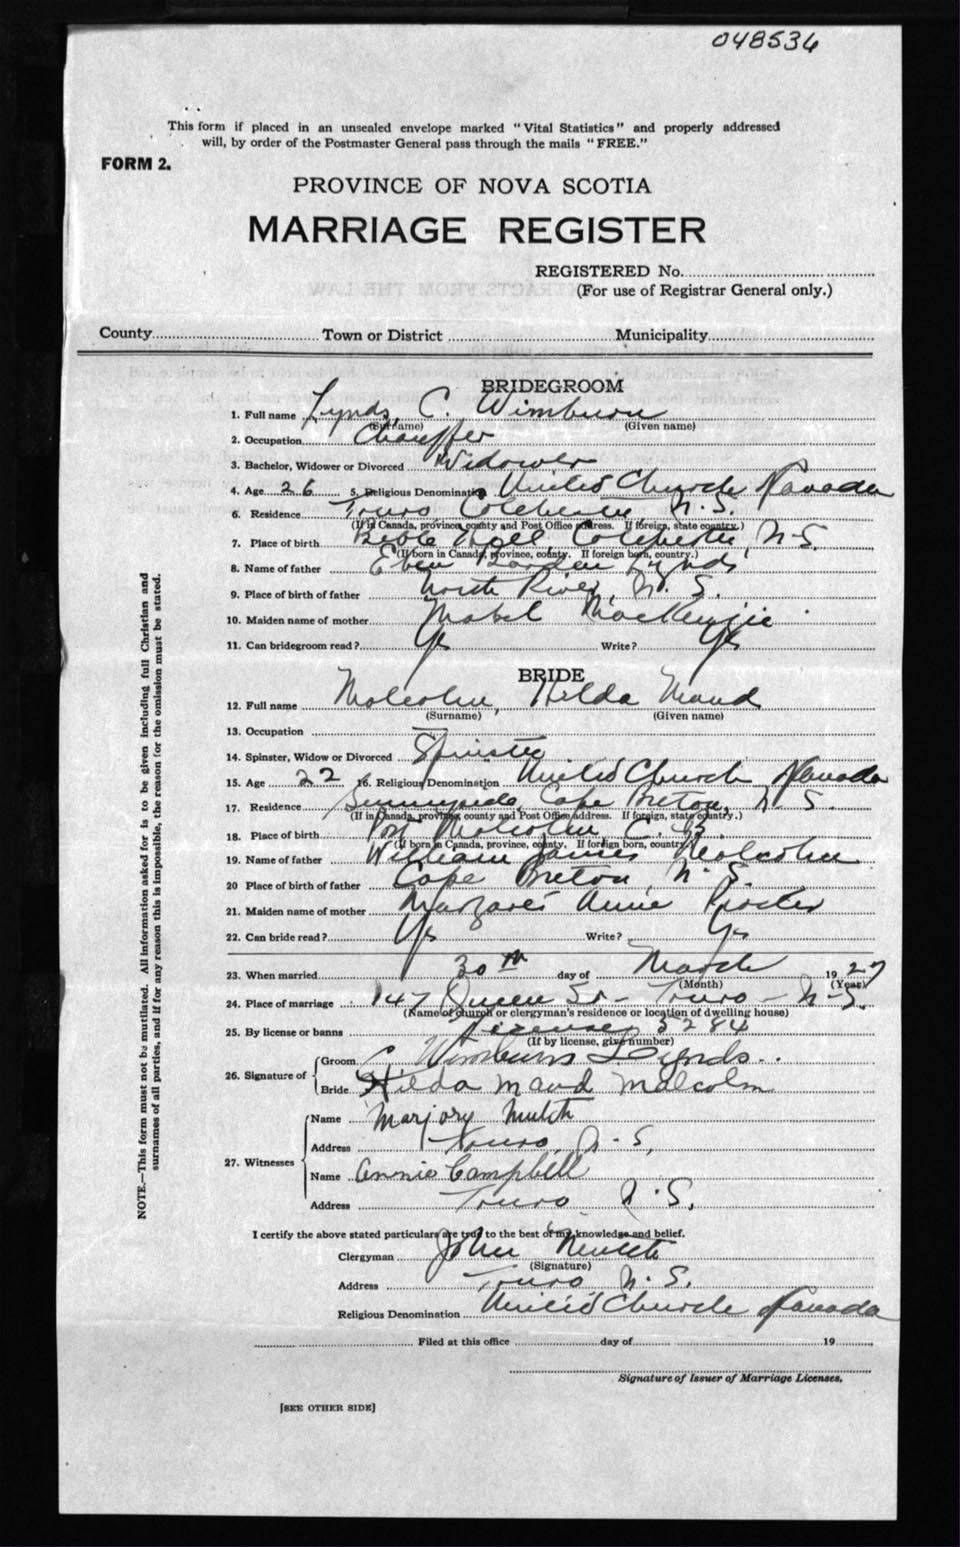 048536
This form if placed in an unsealed envelope marked "Vital Statistics" and properly addressed
will, by order of the Postmaster General pass through the mails "FREE."
FORM 2.
PROVINCE OF NOVA SCOTIA
MARRIAGE REGISTER
REGISTERED No.
(For use of Registrar General only.)
County Town or District Municipality
BRIDEGROOM
1. Full name Lynds, C. Wimburn
(Surname) (Given name)
2. Occupation Chauffer
3. Bachelor, Widower or Divorced Widower
4. Age 26 5. Religious Denomination United Church Canada
6. Residence Truro Colchester N.S.
(If in Canada, province, county and Post Office address. If foreign, state country.)
7. Place of birth Bible Hill, Colchester, N.S.
(If born in Canada, province, county. If foreign born, country.)
8. Name of father Eben Borden Lynds
9. Place of birth of father North River, N. S.
10. Maiden name of mother Mabel MacKenzie
11. Can bridegroom read? Yes Write? Yes
BRIDE
12. Full name Malcolm, Hilda Maud
(Surname) (Given name)
13. Occupation —
14. Spinster, Widow or Divorced Spinster
15. Age 22 16. Religious Denomination United Church Canada
17. Residence Sunnyside, Cape Breton, N.S.
(If in Canada, province, county and Post Office Address. If foreign, state country.)
18. Place of birth Port Malcolm, C. B.
(If born in Canada, province, county. If foreign born, country.)
19. Name of father William James Malcolm
20 Place of birth of father Cape Breton, N.S.
21. Maiden name of mother Margaret Annie Proctor
22. Can bride read? Yes Write? Yes
23. When married 30th day of March 1927
(Month) (Year)
24. Place of marriage 147 Queen St - Truro - N-S.
(Name of church or clergyman's residence or location of dwelling house)
25. By license or banns License 5284
(If by license, give number)
26. Signature of Groom C Wimburn Lynds
Bride Hilda Maud Malcolm
27. Witnesses Name Marjory Mutch
Address Truro, N-S,
Name Annie Campbell
Address Truro N.S.
I certify the above stated particulars are true to the best of my knowledge and belief.
Clergyman John Mutch
(Signature)
Address Truro N.S.
Religious Denomination United Church Canada
Filed at this office day of 19
Signature of Issuer of Marriage Licenses.
[SEE OTHER SIDE]
NOTE.—This form must not be mutilated. All information asked for is to be given including full Christian and
surnames of all parties, and if for any reason this is impossible, the reason for the omission must be stated.